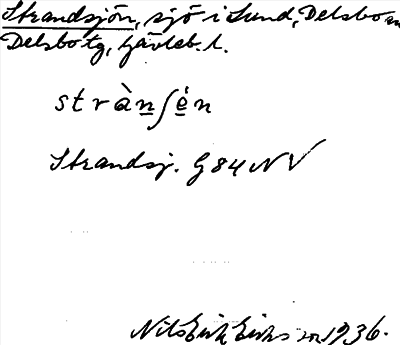 Strandsjön, sjö i Lund, Delsbo sn
Delsbo tg, Gävleb. l.
strànʃėn
Strandsj. G84 NV
Nils Erik Erikszon 1936.